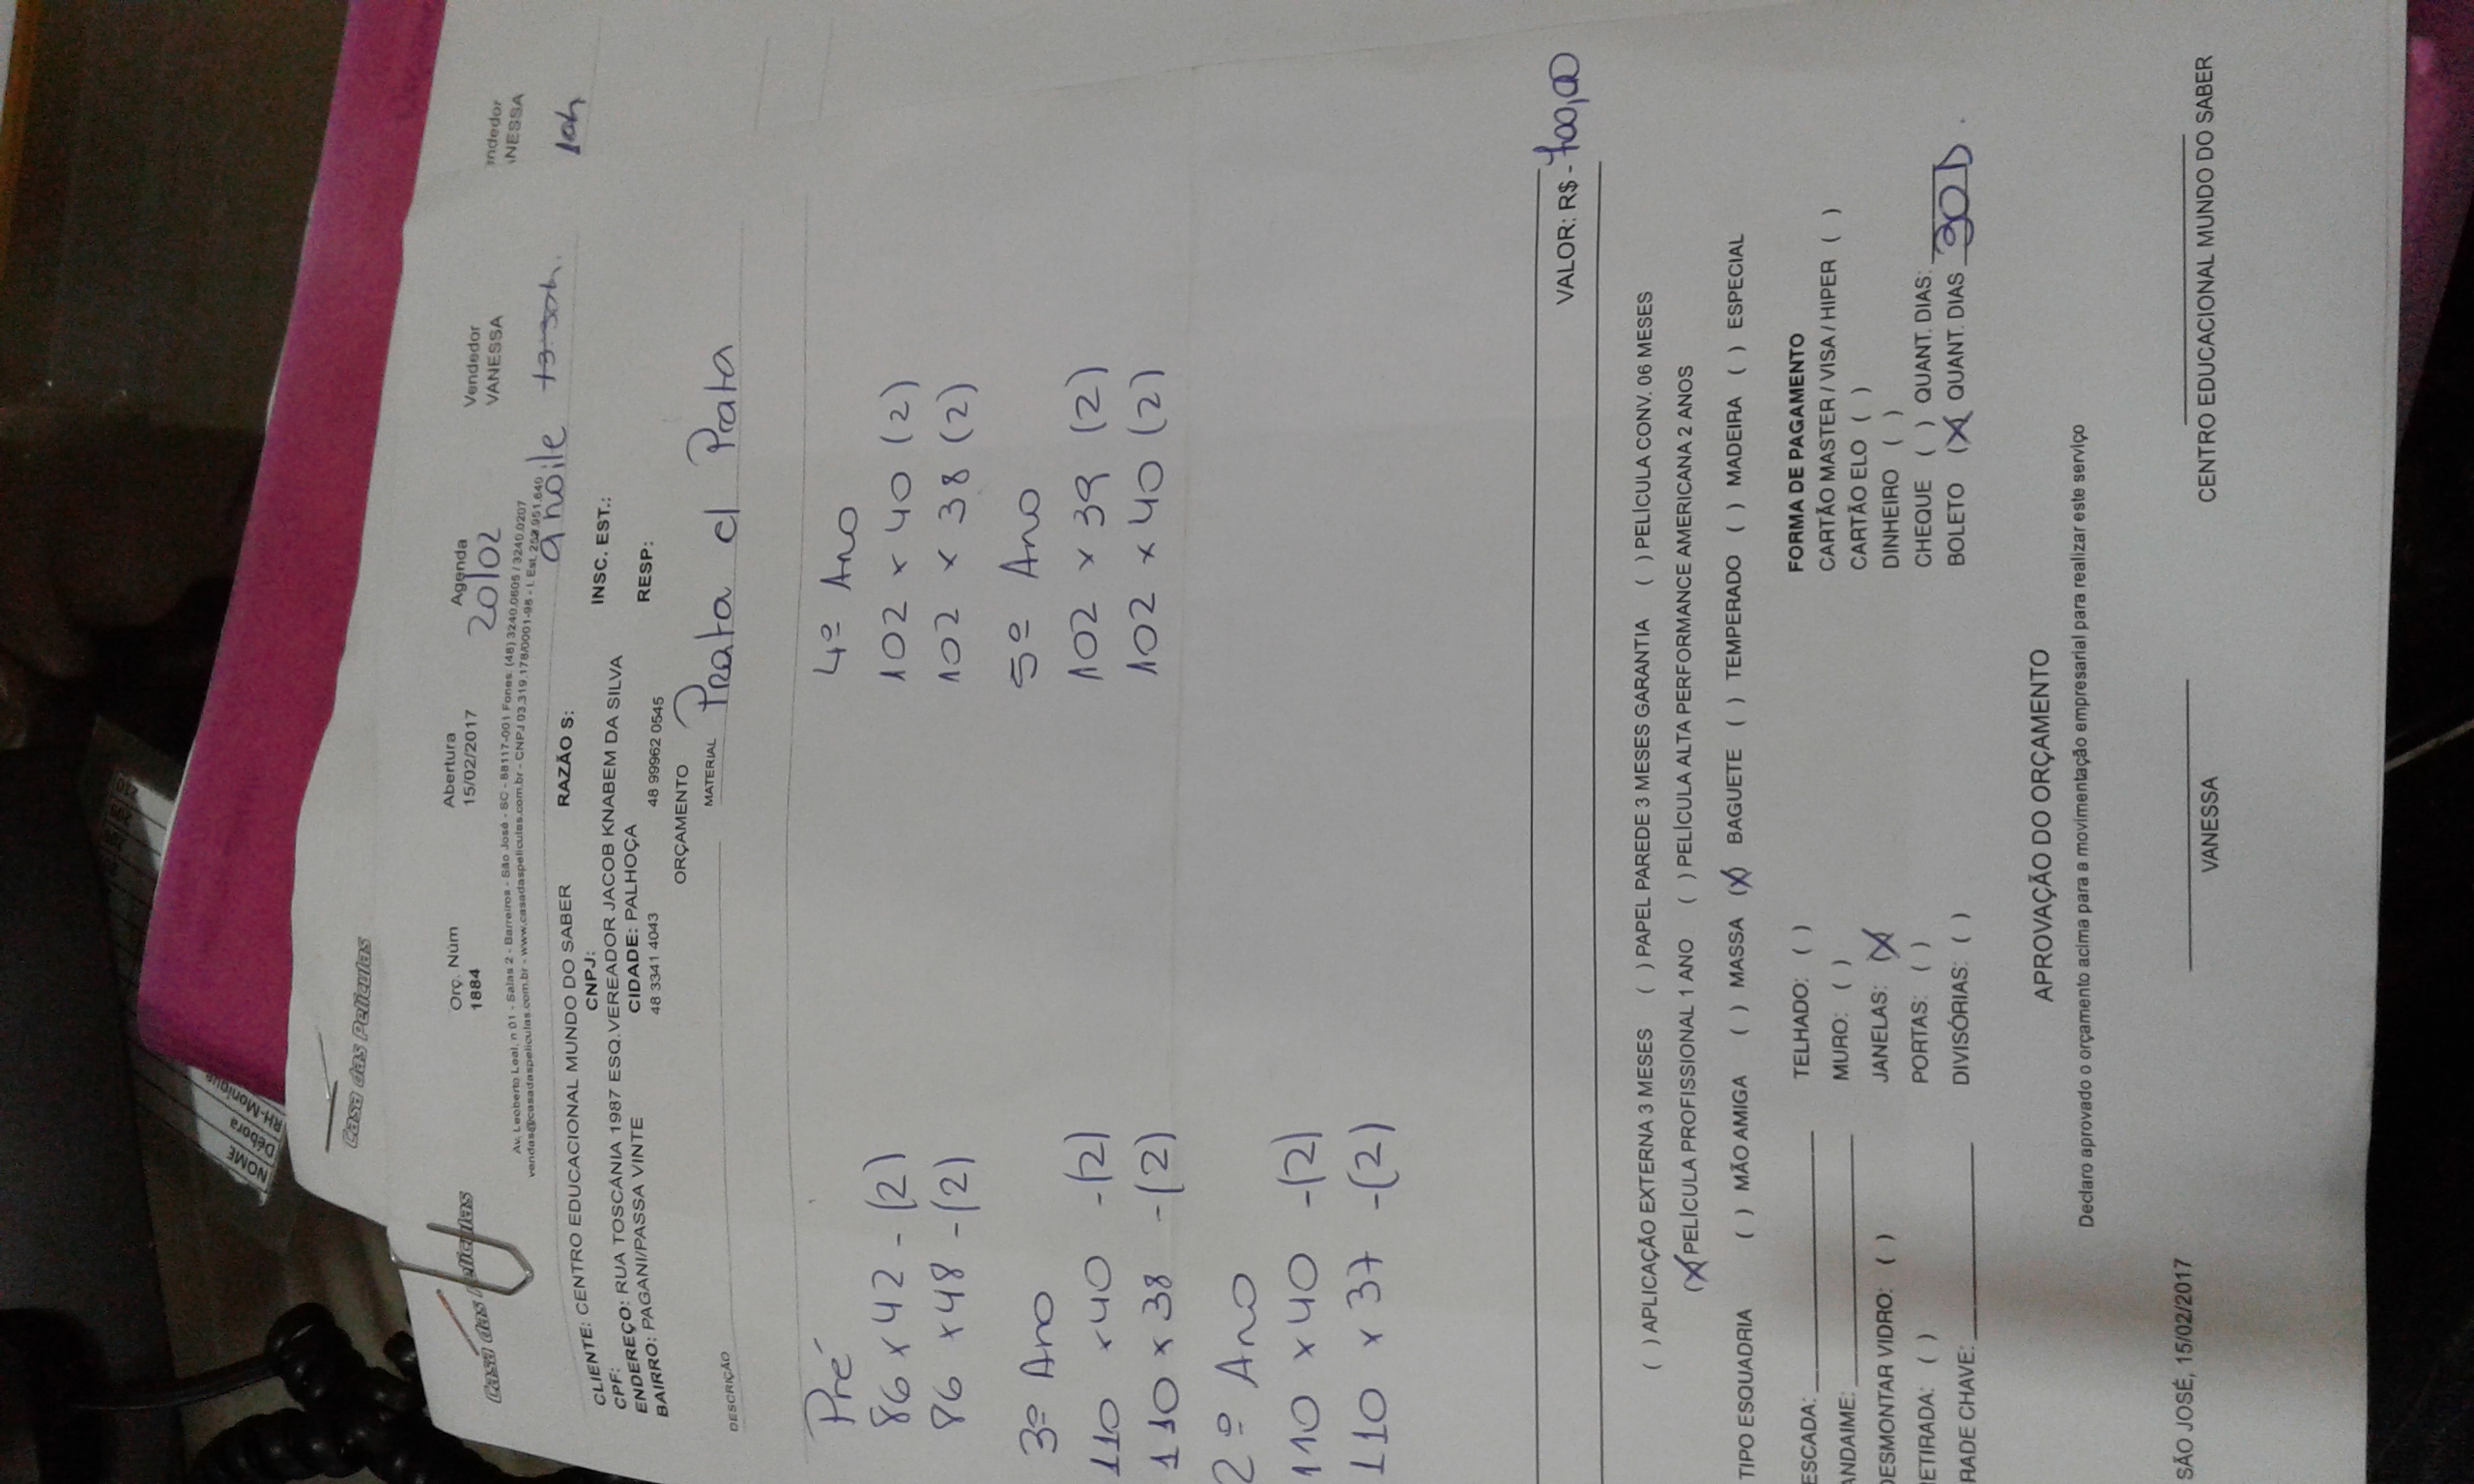 Casa das Películas
Casa das Películas
Orç. Núm Abertura Agenda Vendedor
1884 15/02/2017 20/02 VANESSA
Av. Leoberto Leal, n 01 - Salas 2 - Barreiros - São José - SC - 88117-001 Fones: (48) 3240.0605 / 3240.0207
vendas@casadaspeliculas.com.br - www.casadaspeliculas.com.br - CNPJ 03.319.178/0001-98 - I. Est.
13:30h. 10h
CLIENTE: CENTRO EDUCACIONAL MUNDO DO SABER RAZÃO S:
CPF: CNPJ: INSC. EST.:
ENDEREÇO: RUA TOSCÂNIA 1987 ESQ.VEREADOR JACOB KNABEM DA SILVA
BAIRRO: PAGANI/PASSA VINTE CIDADE: PALHOÇA RESP:
48 3341 4043 48 99962 0545
ORÇAMENTO
DESCRIÇÃO MATERIAL Prata c/ Prata
Pré 4º Ano
86 x 42 - (2) 102 x 40 (2)
86 x 48 - (2) 102 x 38 (2)
3º Ano 5º Ano
110 x 40 - (2) 102 x 39 (2)
110 x 38 - (2) 102 x 40 (2)
2º Ano
110 x 40 - (2)
110 x 37 - (2)
VALOR: R$ - 700,00
( ) APLICAÇÃO EXTERNA 3 MESES ( ) PAPEL PAREDE 3 MESES GARANTIA ( ) PELÍCULA CONV. 06 MESES
(X) PELÍCULA PROFISSIONAL 1 ANO ( ) PELÍCULA ALTA PERFORMANCE AMERICANA 2 ANOS
TIPO ESQUADRIA ( ) MÃO AMIGA ( ) MASSA (X) BAGUETE ( ) TEMPERADO ( ) MADEIRA ( ) ESPECIAL
FORMA DE PAGAMENTO
ESCADA: TELHADO: ( ) CARTÃO MASTER / VISA / HIPER ( )
ANDAIME: MURO: ( ) CARTÃO ELO ( )
DESMONTAR VIDRO: ( ) JANELAS: (X) DINHEIRO ( )
RETIRADA: ( ) PORTAS: ( ) CHEQUE ( ) QUANT. DIAS:
GRADE CHAVE: DIVISÓRIAS: ( ) BOLETO (X) QUANT. DIAS 30D.
APROVAÇÃO DO ORÇAMENTO
Declaro aprovado o orçamento acima para a movimentação empresarial para realizar este serviço
SÃO JOSÉ, 15/02/2017 VANESSA CENTRO EDUCACIONAL MUNDO DO SABER
NOME
Débora
RH-Monique